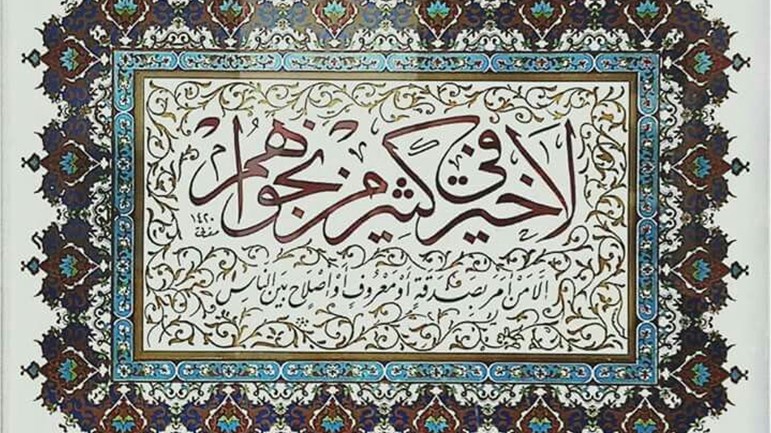 لا خير في كثير من نجواهم
١٤٢٠
إلا من أمر بصدقة أو معروف أو إصلاح بين الناس